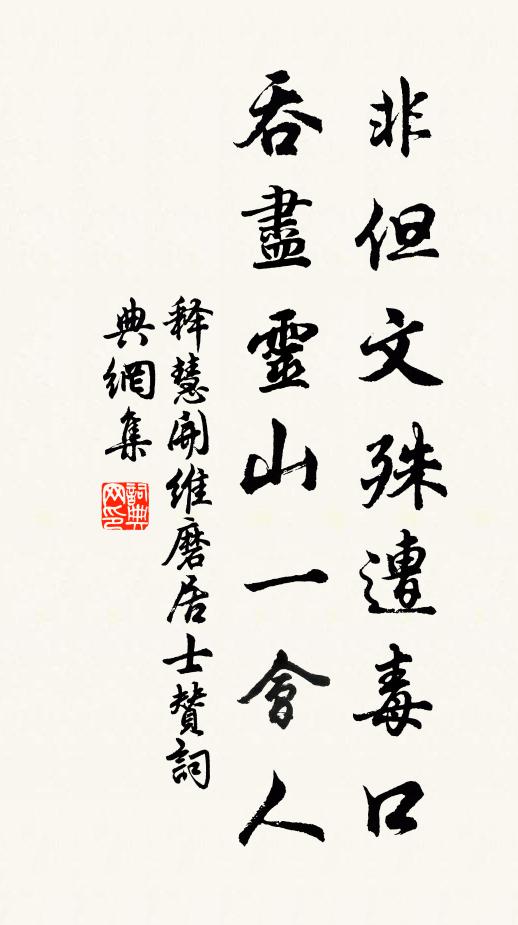 非但文殊遭毒口
吞盡靈山一會人
释慧開維磨居士賛詞
典網集
詞典
网印